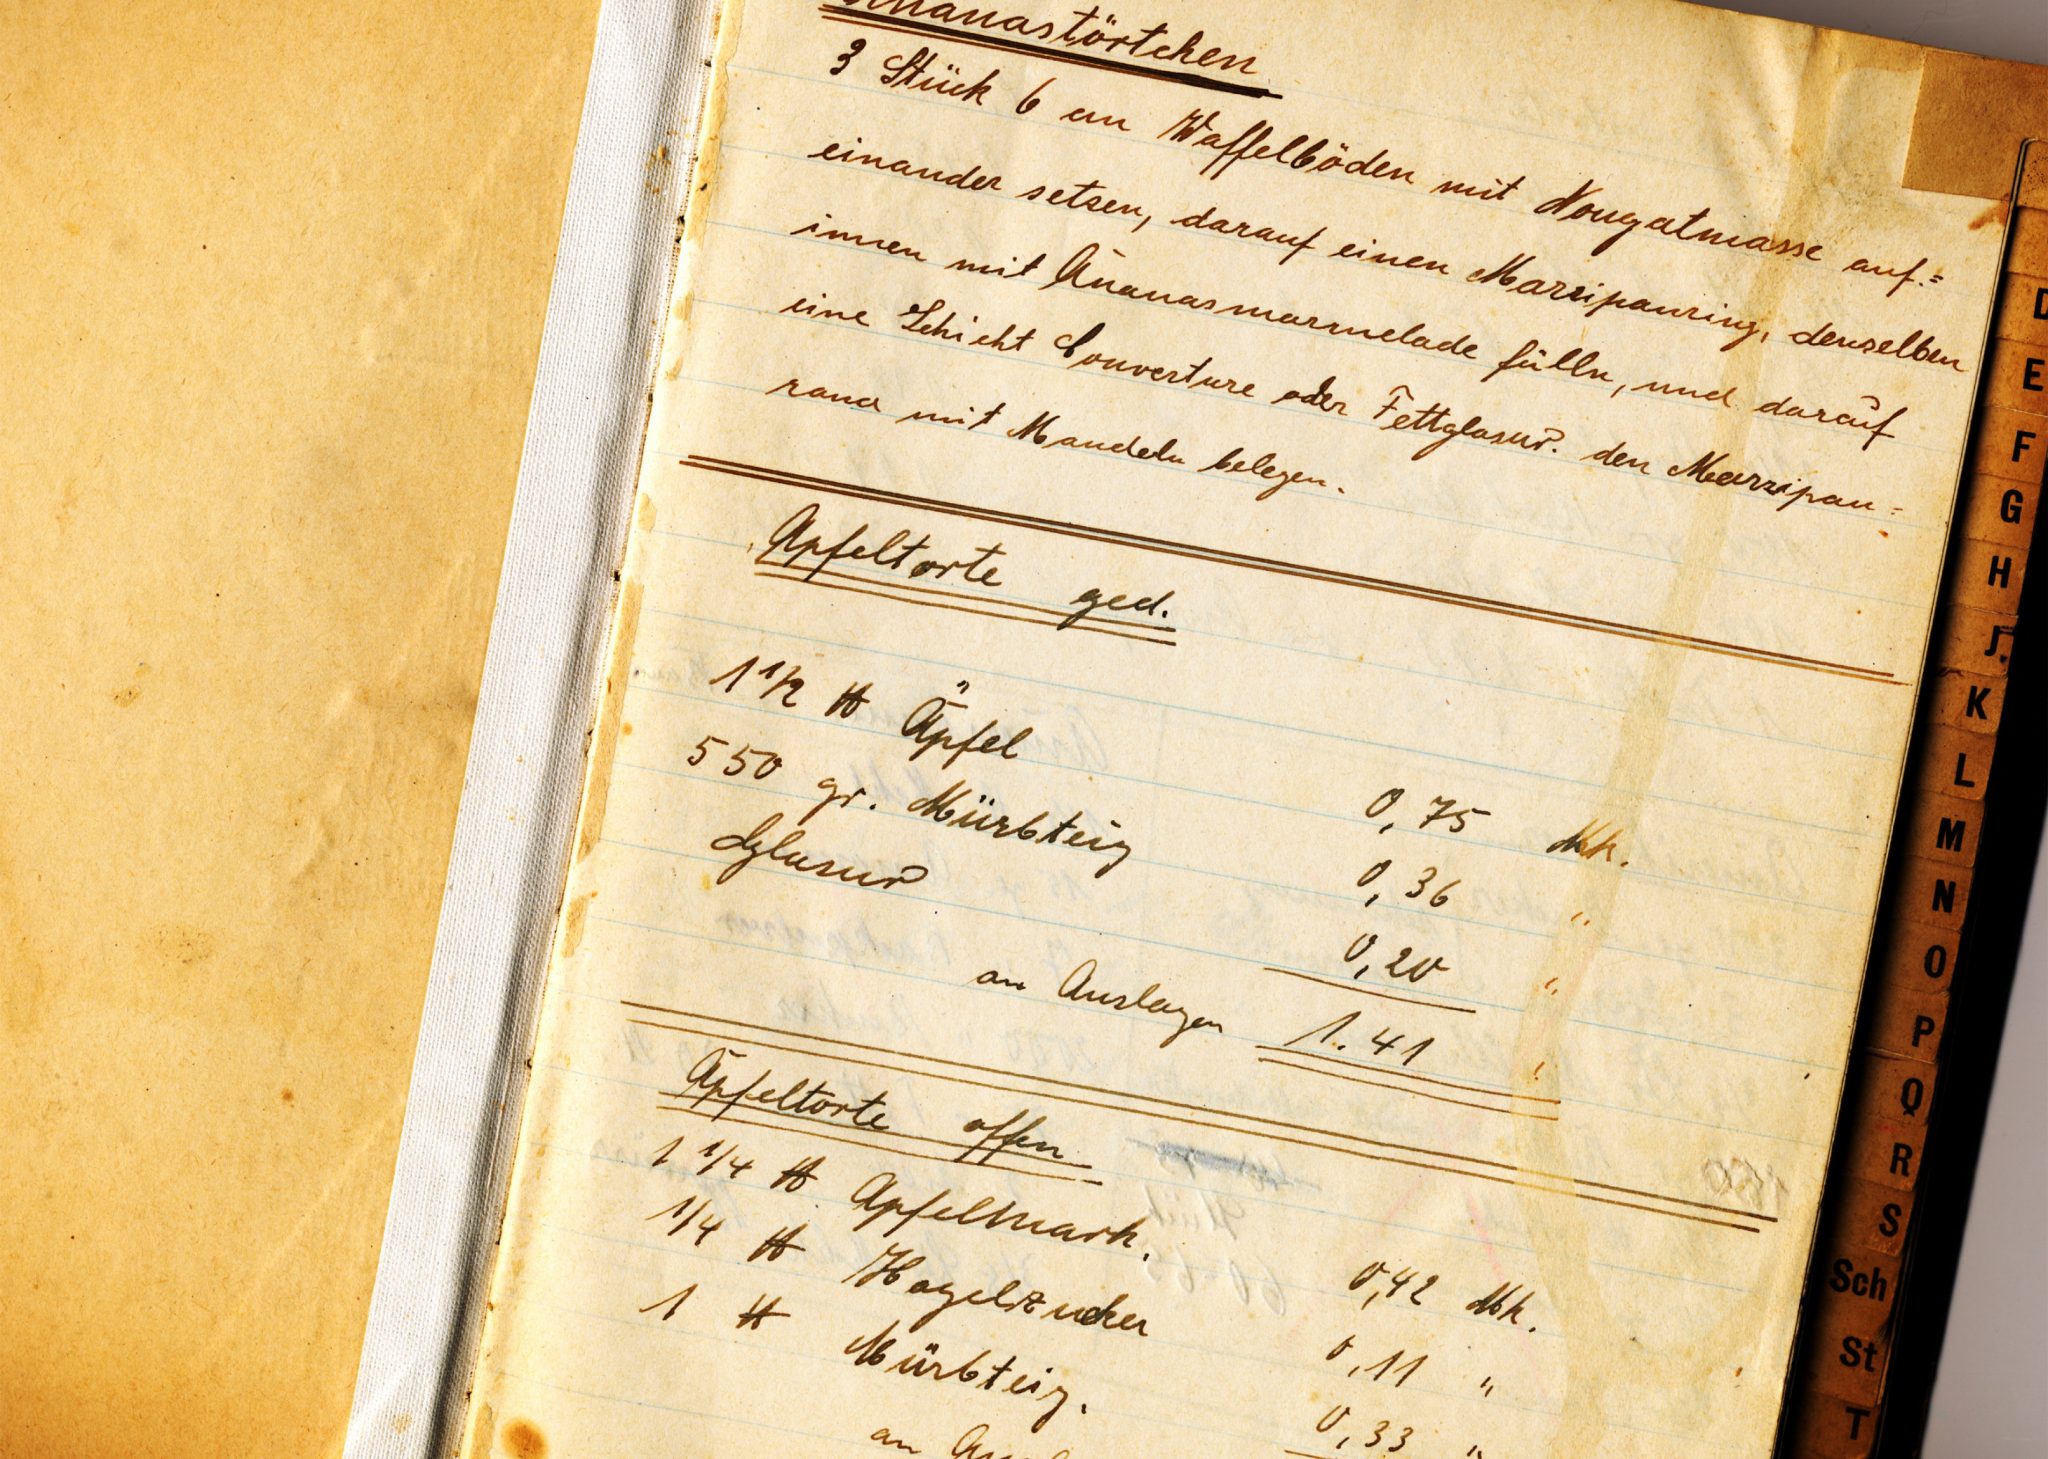 Ananastörtchen
3 Stück 6 cm Waffelböden mit Nougatmasse auf=
einander setzen, darauf einen Marzipanring, denselben
innen mit Ananasmarmelade fülln, und darauf
eine Schicht Couverture oder Fettglasur. den Marzipan=
rand mit Mandeln belegen.
Apfeltorte ged.
1 1/2 ℔ Äpfel 0,75 Mk.
550 gr. Mürbteig 0,36 "
Glasur 0,20 "
an Auslagen 1.41 "
Apfeltorte offen
1 1/4 ℔ Apfelmark. 0,42 Mk.
1/4 ℔ Hagelzucker 0,11 "
1 ℔ Mürbteig. 0,33 "
an
D
E
F
G
H
J.
K
L
M
N
O
P
Q
R
S
Sch
St
T